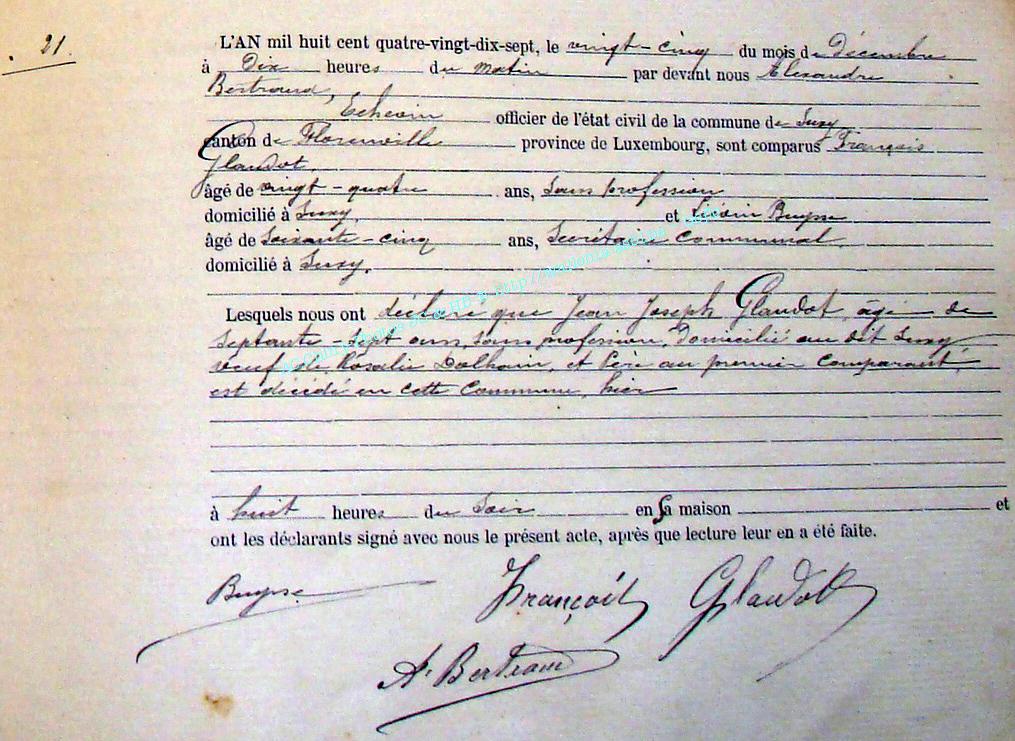 21.
L'AN mil huit cent quatre-vingt-dix-sept, le vingt-cinq du mois de Décembre
à Dix heures du matin par devant nous Alexandre
Bertrand,
Echevin officier de l'état civil de la commune de Suxy
canton de Florenville province de Luxembourg, sont comparus François
Glaudot
âgé de vingt-quatre ans, Sans profession
domicilié à Suxy, et Buysse
âgé de Soixante-cinq ans, Secrétaire Communal.
domicilié à Suxy.
Lesquels nous ont déclaré que Jean Joseph Glaudot, âgé de
Septante-Sept ans, Sans profession, Domicilié au dit Suxy
veuf de Rosalie Dalhain, et Père au premier comparant,
est décédé en cette Commune, hier
à huit heures du Soir en sa maison et
ont les déclarants signé avec nous le présent acte, après que lecture leur en a été faite.
Buysse
François Glaudot
A. Bertrand